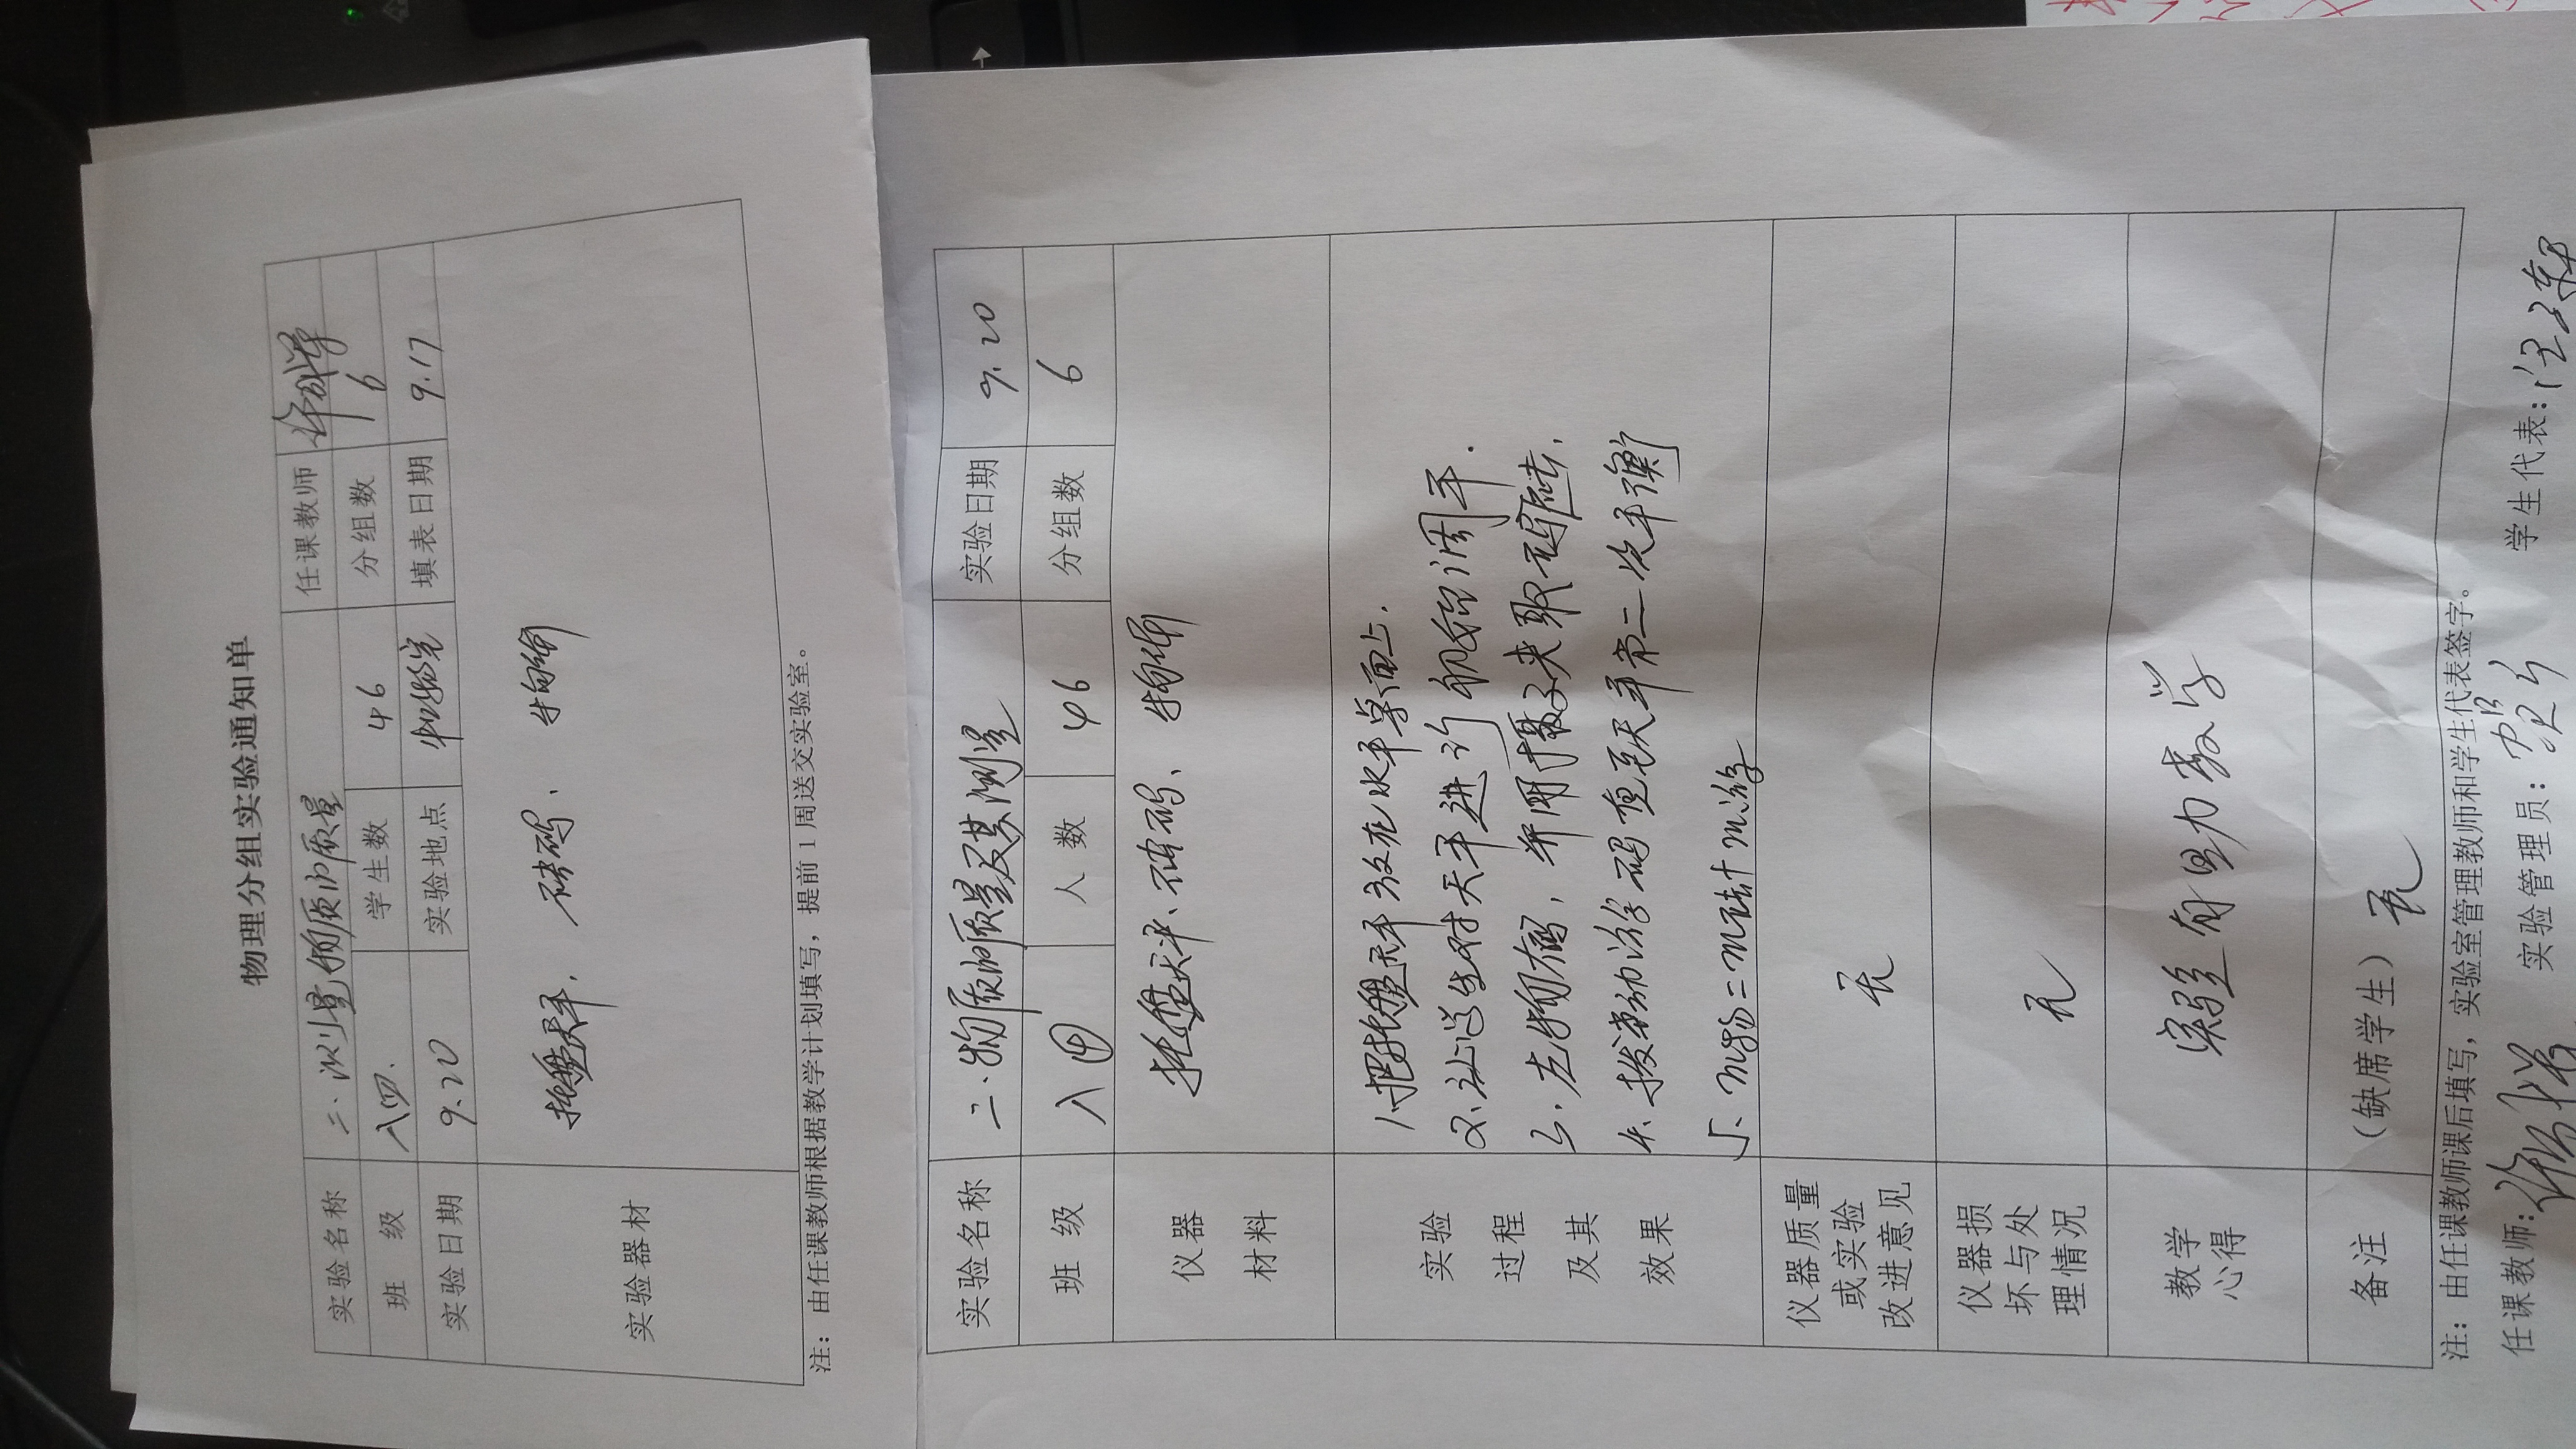 物理分组实验通知单
实验名称 二、测量物质的质量 任课教师
班级 八四. 学生数 46 分组数 6
实验日期 9.20 实验地点 实验室 填表日期 9.17
实验器材 托盘天平, 砝码、 物体
注：由任课教师根据教学计划填写，提前1周送交实验室。
实验名称 二、物质的质量及其测量 实验日期 9.20
班级 八④ 人数 46 分组数 6
仪器材料 托盘天平、砝码、 物体
实验过程及其效果
1、把托盘天平放在水平桌面上.
2、让学生对天平进行 调平.
3、左物右码, 并用镊子夹取砝码.
4、拨动游码直至天平第二次平衡
5、m物=m砝+m游
仪器质量或实验改进意见 无
仪器损坏与处理情况 无
教学心得 实验有助力教学
备注 （缺席学生） 无
注：由任课教师课后填写，实验室管理教师和学生代表签字。
任课教师： 实验管理员： 学生代表：